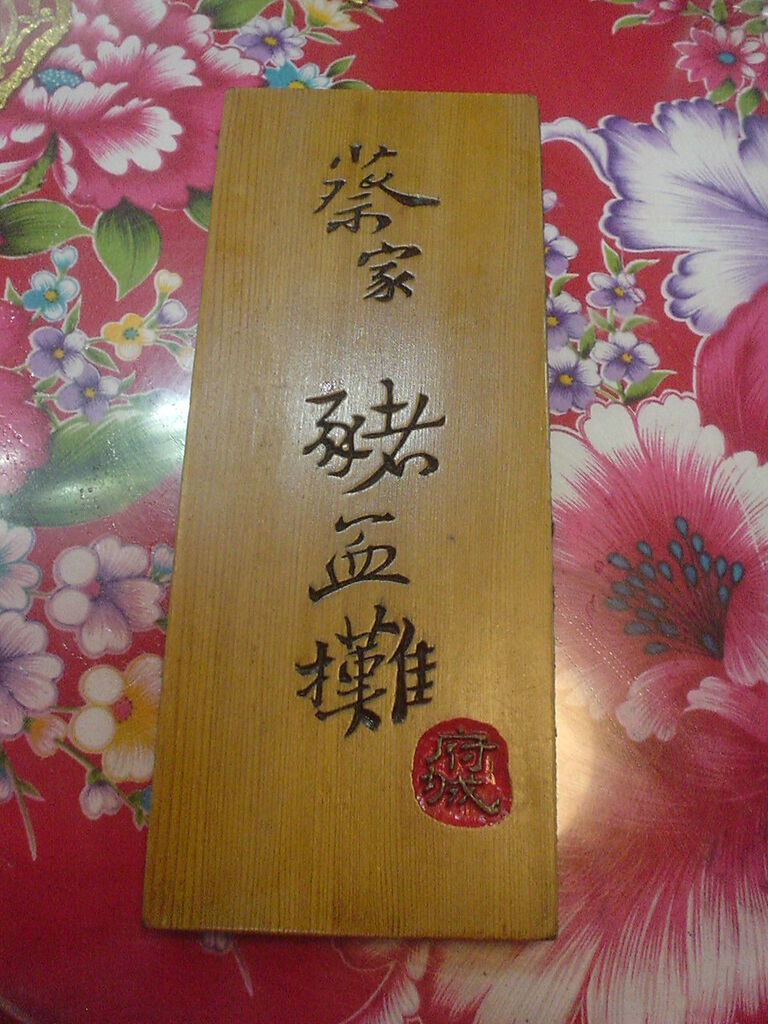 蔡家 豬血攤
府城